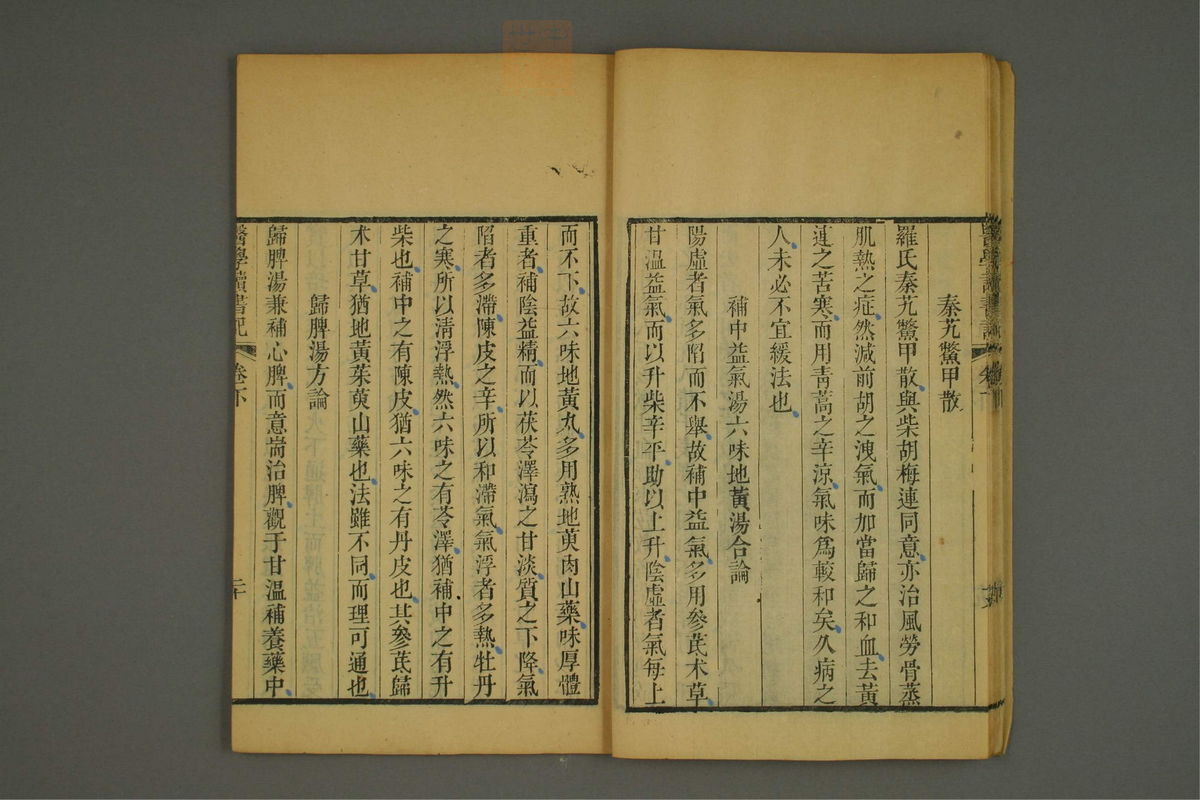 秦艽鱉甲散
羅氏秦艽鱉甲散與柴胡梅連同意亦治風勞骨蒸
肌熱之症然減前胡之洩氣而加當歸之和血去黃
連之苦寒而用青蒿之辛涼氣味爲較和矣久病之
人未必不宜緩法也
補中益氣湯六味地黃湯合論
陽虛者氣多陷而不舉故補中益氣多用參芪术草
甘溫益氣而以升柴辛平助以上升陰虛者氣每上
而不下故六味地黃丸多用熟地萸肉山藥味厚體
重者補陰益精而以茯苓澤瀉之甘淡質之下降氣
陷者多滯陳皮之辛所以和滯氣氣浮者多熱牡丹
之寒所以清浮熱然六味之有苓澤猶補中之有升
柴也補中之有陳皮猶六味之有丹皮也其參芪歸
术甘草猶地黃茱萸山藥也法雖不同而理可通也
歸脾湯方論
歸脾湯兼補心脾而意耑治脾觀于甘溫補養藥中
醫學讀書記 卷下 二十